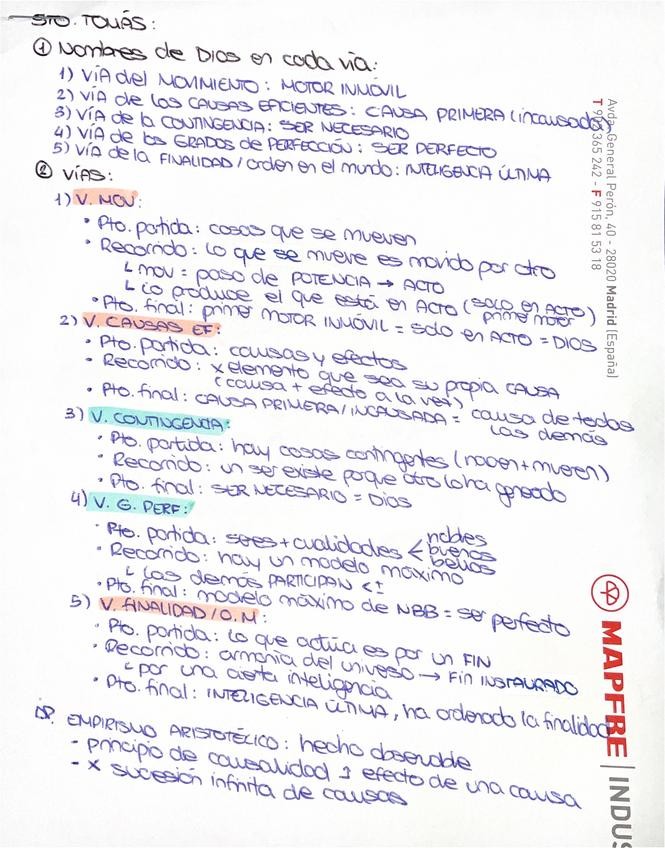 STO. TOMÁS:
① Nombres de Dios en cada vía:
1) VÍA del MOVIMIENTO: MOTOR INMÓVIL
2) VÍA de las CAUSAS EFICIENTES: CAUSA PRIMERA (incausada)
3) VÍA de la CONTINGENCIA: SER NECESARIO
4) VÍA de los GRADOS de PERFECCIÓN: SER PERFECTO
5) VÍA de la FINALIDAD / orden en el mundo: INTELIGENCIA ÚLTIMA
② VÍAS:
1) V. MOV:
• Pto. partida: cosas que se mueven
• Recorrido: lo que se mueve es movido por otro
↳ mov = paso de POTENCIA → ACTO
↳ lo produce el que está en ACTO (sólo en ACTO)
primer motor
• Pto. final: primer MOTOR INMÓVIL = solo en ACTO = DIOS
2) V. CAUSAS EF:
• Pto. partida: causas y efectos
• Recorrido: x elemento que sea su propia CAUSA
(causa + efecto a la vez)
• Pto. final: CAUSA PRIMERA / INCAUSADA = causa de todas
las demás
3) V. CONTINGENCIA:
• Pto. partida: hay cosas contingentes (nacen + mueren)
• Recorrido: un ser existe porque otro lo ha generado
• Pto. final: SER NECESARIO = Dios
4) V. G. PERF:
• Pto. partida: seres + cualidades < nobles
buenos
bellos
• Recorrido: hay un modelo máximo
↳ las demás PARTICIPAN
• Pto. final: modelo máximo de NBB = ser perfecto
5) V. FINALIDAD / O.M:
• Pto. partida: lo que actúa es por un FIN
• Recorrido: armonía del universo → Fin INSTAURADO
↳ por una cierta inteligencia
• Pto. final: INTELIGENCIA ÚLTIMA, ha ordenado la finalidad
EMPIRISMO ARISTOTÉLICO: hecho observable
- principio de causalidad efecto de una causa
- x sucesión infinita de causas
Avda. General Perón, 40 - 28020 Madrid (España)
365 242 - F 915 81 53 18
MAPFRE | INDUS